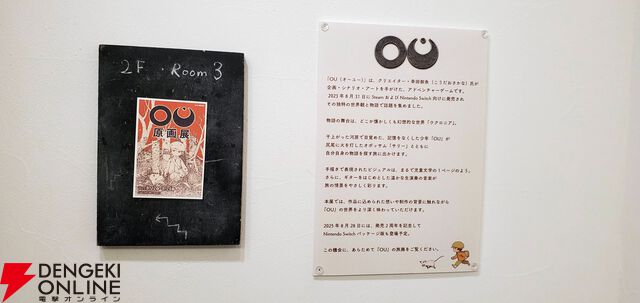 2F . Room 3
OU
原画展
OU
「OU（オーユー）」は、クリエイター・幸田御魚（こうだおさかな）氏が
企画・シナリオ・アートを手がけた、アドベンチャーゲームです。
2023年8月31日に Steam および Nintendo Switch 向けに発売され
その独特の世界観と物語で話題を集めました。
物語の舞台は、どこか懐かしくも幻想的な世界「ウクロニア」。
干上がった河原で目覚めた、記憶をなくした少年「OU」が
尻尾に火を灯したオポッサム「サリー」とともに
自分自身の物語を探す旅に出かけます。
手描きで表現されたビジュアルは、まるで児童文学の1ページのよう。
さらに、ギターをはじめとした温かな生演奏の音楽が
旅の情景をやさしく彩ります。
本展では、作品に込められた想いや制作の背景に触れながら
「OU」の世界をより深く味わっていただけます。
2025年8月28日には、発売2周年を記念して
Nintendo Switch パッケージ版も登場予定。
この機会に、あらためて「OU」の旅路をご覧ください。
DENGEKI
ONLINE
電撃オンライン